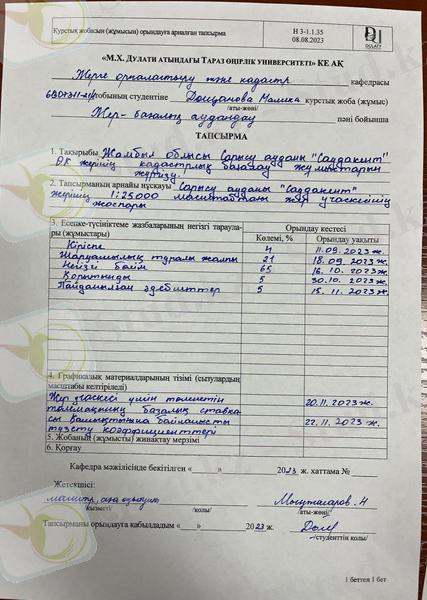 Курстық жобасын (жұмысын) орындауға арналған тапсырма
Н 3-1.1.35
08.08.2023
DULATY
«М.Х. Дулати атындағы Тараз өңірлік университеті» КЕ АҚ
Жерге орналастыру және кадастр кафедрасы
тобының студентіне Дощанова Малика курстық жоба (жұмыс)
/аты-жөні/
Жер-бағалық аудандау пәні бойынша
ТАПСЫРМА
1. Тақырыбы Жамбыл облысы Сарысу ауданы "Саудакент"
ӨК жерінің кадастрлық бағалау жұмыстарын
жүргізу.
2. Тапсырманың арнайы нұсқауы Сарысу ауданы "Саудакент"
жерінің 1:25000 масштабтағы жер учаскесінің
жоспары
3. Есепке-түсініктеме жазбаларының негізгі тараулары (жұмыстары)
Орындау кестесі
Көлемі, %
Орындау уақыты
Кіріспе 4 11.09.2023ж
Шаруашылық туралы жалпы 21 18.09.2023ж
Негізгі бөлім 65 16.10.2023ж
Қорытынды 5 30.10.2023ж
Пайдаланылған әдебиеттер 5 15.11.2023ж
4. Графикалық материалдарының тізімі (сызулардың
масштабы келтіріледі)
Жер учаскесі үшін төленетін
төлемақының базалық ставка- 20.11.2023ж
сы қашықтығына байланысты
түзету коэффициенттері 22.11.2023ж.
5. Жобаның (жұмысты) жинақтау мерзімі
6. Қорғау
Кафедра мәжілісінде бекітілген «____»__________ 2023 ж. хаттама №____
Жетекшісі:
магистр, аға оқытушы
/қызметі/ /қолы/ /аты-жөні/
Тапсырманы орындауға қабылдадым «____»__________ 2023 ж.
/студенттің қолы/
1 беттен 1 бет